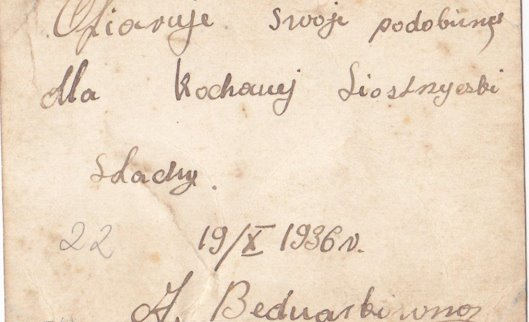 Ofiaruje swoje podobiznę
dla kochanej Siostrzyczki
Stachy.
22 19/X 1936 r.
H. Bednarkówna